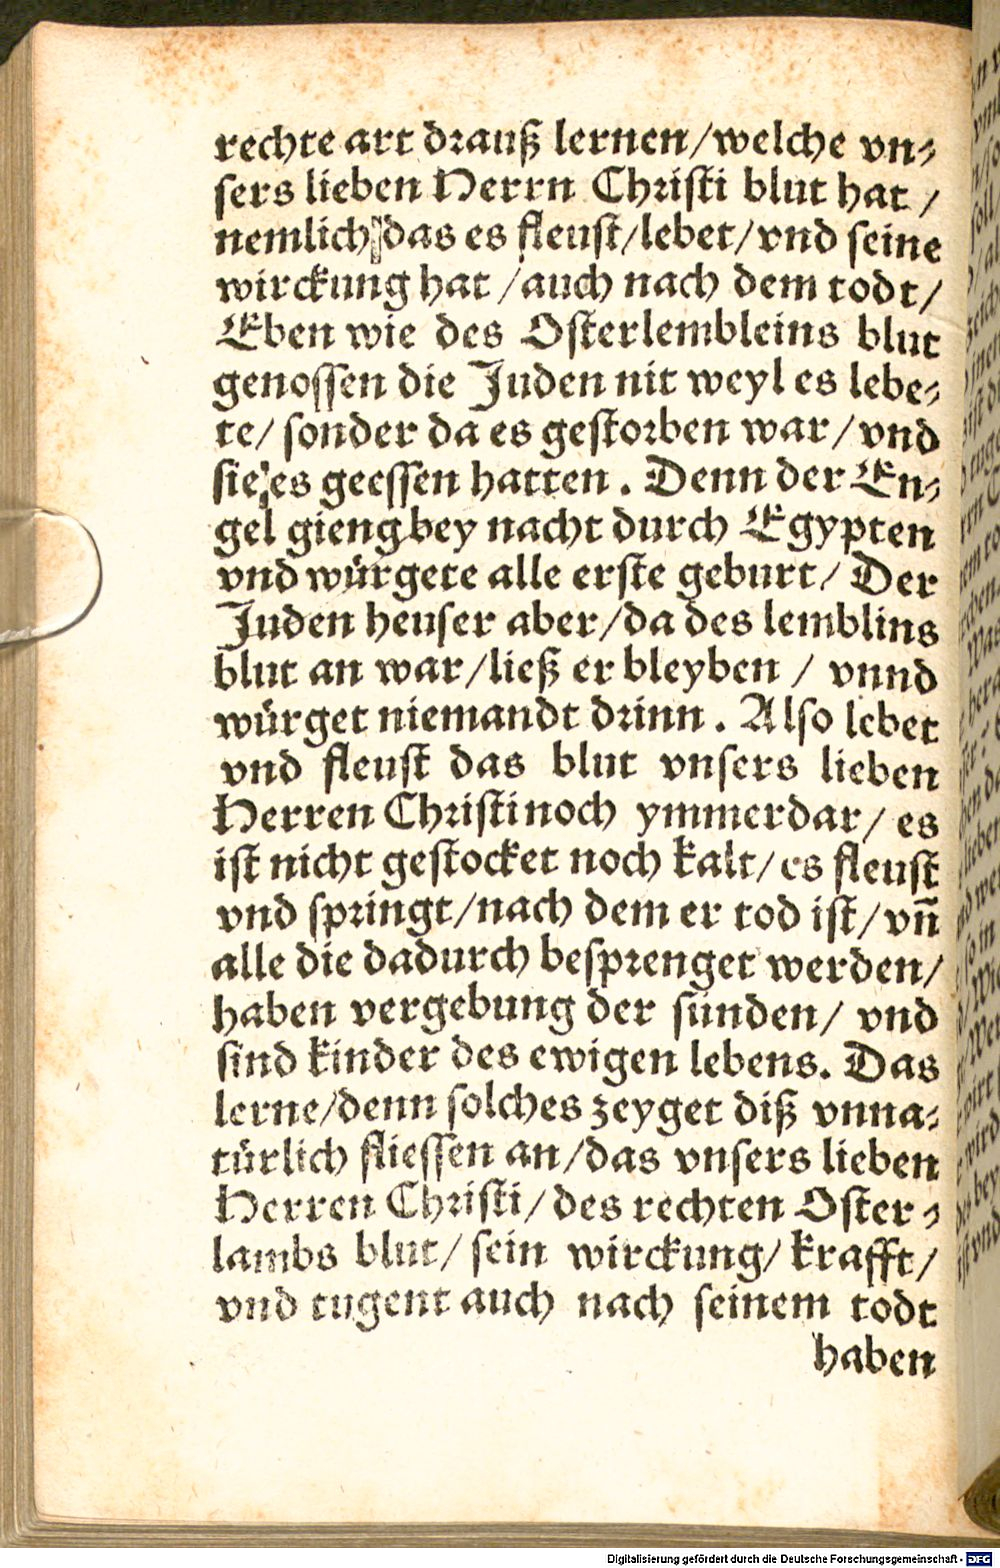 rechte art drauß lernen/welche vn⸗
sers lieben Herrn Christi blut hat /
nemlich/das es fleust/lebet/vnd seine
wirckung hat /auch nach dem todt/
Eben wie des Osterlembleins blut
genossen die Juden nit weyl es lebe⸗
te/ sonder da es gestorben war/vnd
sie es geessen hatten. Denn der En⸗
gel gieng bey nacht durch Egypten
vnd würgete alle erste geburt/ Der
Juden heuser aber/da des lemblins
blut an war/ließ er bleyben / vnnd
würget niemandt drinn. Also lebet
vnd fleust das blut vnsers lieben
Herren Christi noch ymmerdar/ es
ist nicht gestocket noch kalt/es fleust
vnd springt/nach dem er tod ist/vñ
alle die dadurch besprenget werden/
haben vergebung der sünden/ vnd
sind kinder des ewigen lebens. Das
lerne/denn solches zeyget diß vnna⸗
türlich fliessen an/das vnsers lieben
Herren Christi/ des rechten Oster⸗
lambs blut/ sein wirckung/ krafft/
vnd tugent auch nach seinem todt
haben
Digitalisierung gefördert durch die Deutsche Forschungsgemeinschaft - DFG